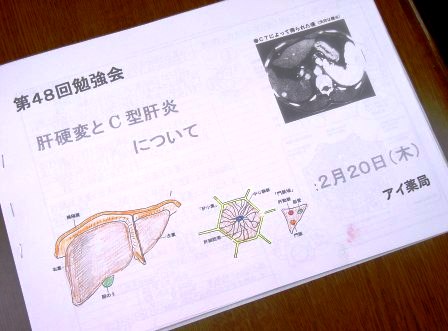 第48回勉強会
●CTによって撮られた像
肝硬変とC型肝炎
について
:2月20日(木)
アイ薬局
右葉
左葉
胆のう
門脈